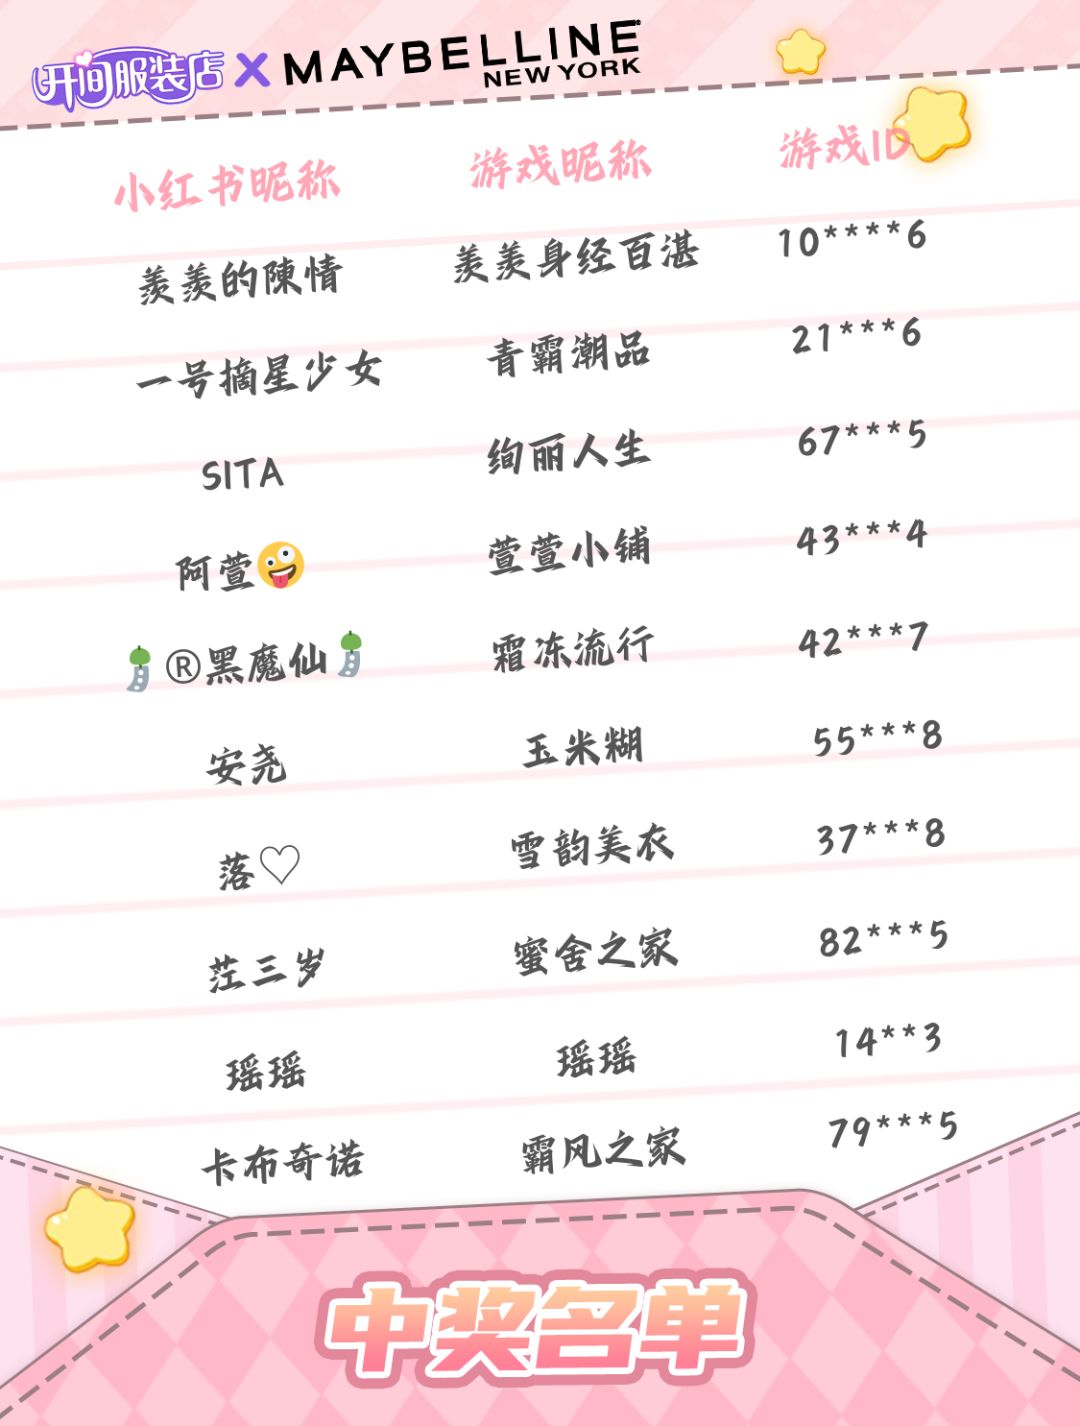 开间服装店 X MAYBELLINE
NEW YORK
小红书昵称 游戏昵称 游戏ID
羡羡的陳情 羡羡身经百湛 10****6
一号摘星少女 青霸潮品 21***6
SITA 绚丽人生 67***5
阿萱🤪 萱萱小铺 43***4
®黑魔仙 霜冻流行 42***7
安尧 玉米糊 55***8
落♡ 雪韵美衣 37***8
茳三岁 蜜舍之家 82***5
瑶瑶 瑶瑶 14**3
卡布奇诺 霸风之家 79***5
中奖名单